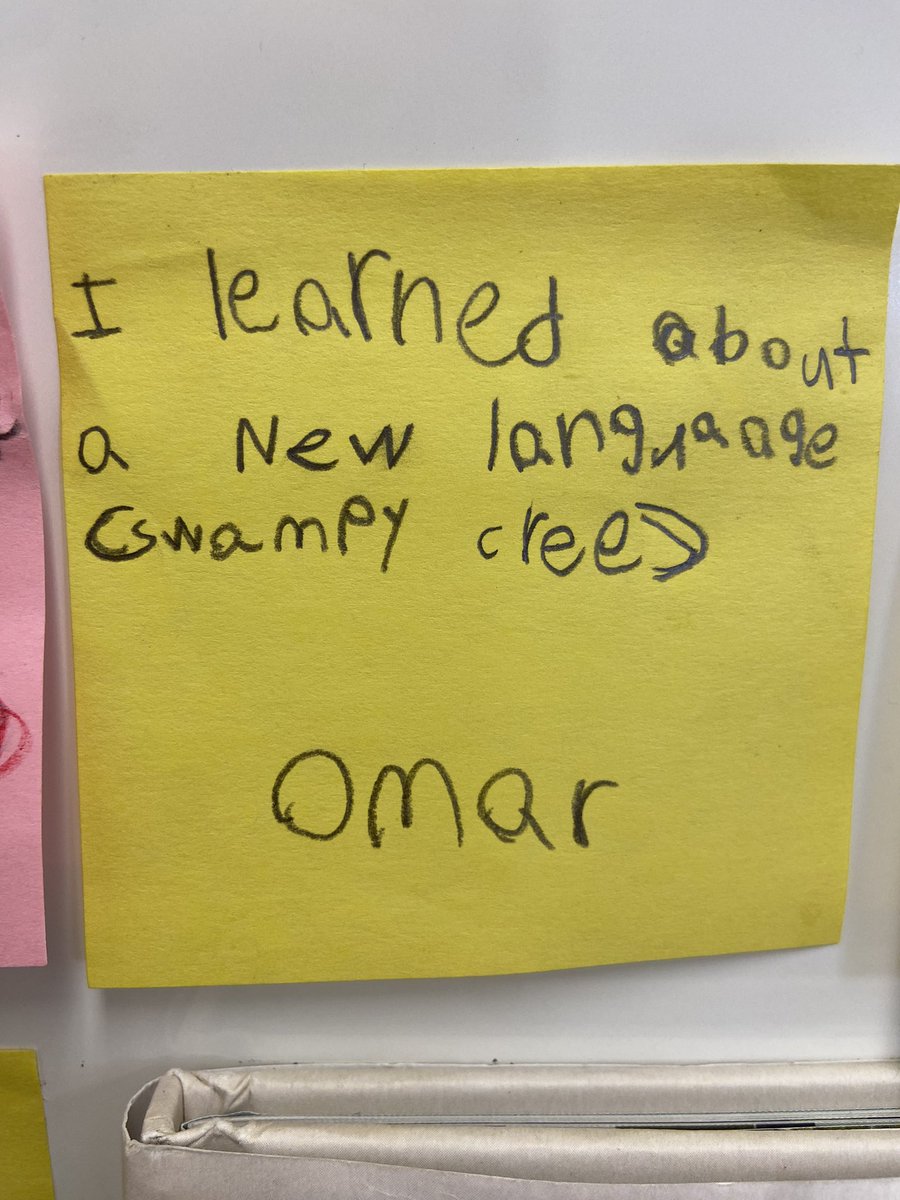 I learned about
a New languaage
(swampy cree)
Omar